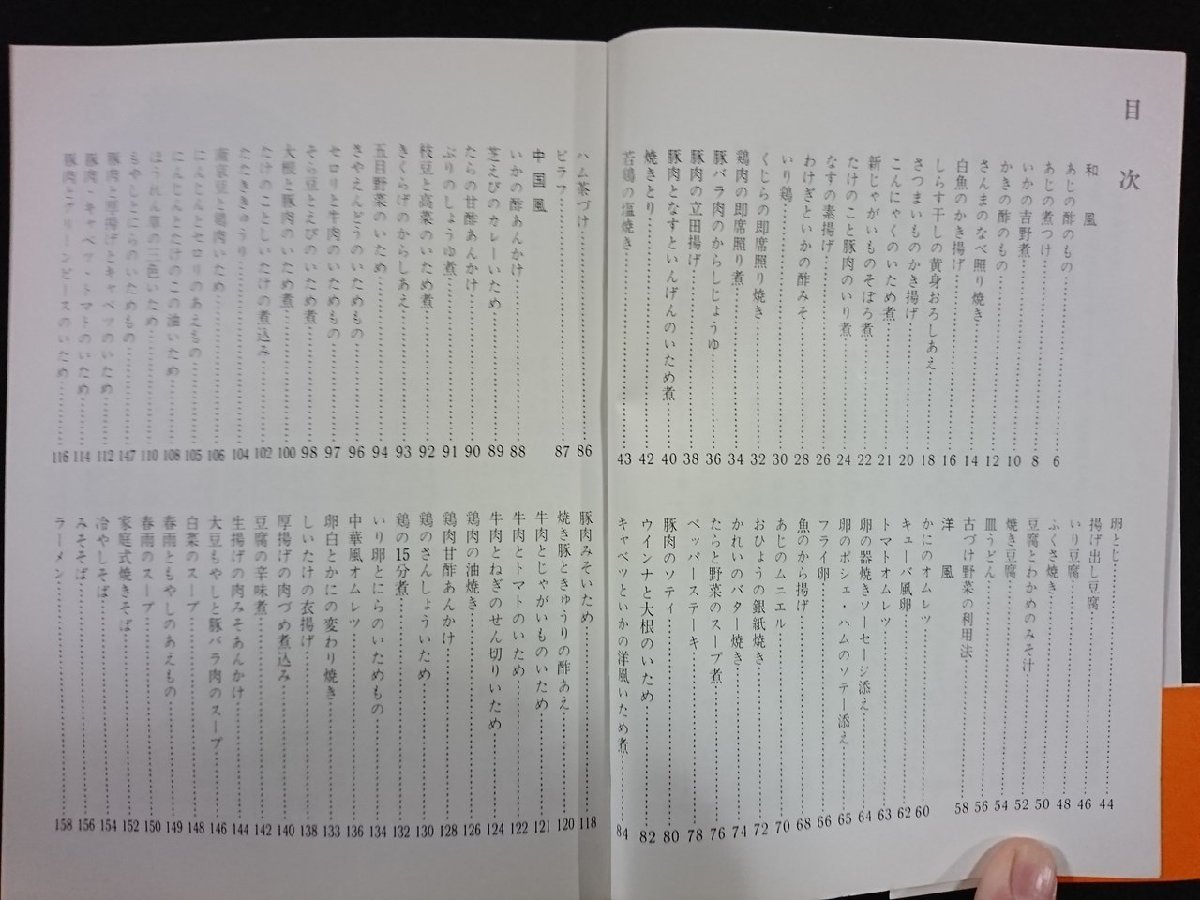 目次
和風
あじの酢のもの……6
あじの煮つけ……8
いかの吉野煮……8
かきの酢のもの……10
さんまのなべ照り焼き……12
白魚のかき揚げ……14
しらす干しの黄身おろしあえ……16
さつまいものかき揚げ……18
こんにゃくのいため煮……20
新じゃがいものそぼろ煮……21
たけのこと豚肉のいり煮……22
なすの素揚げ……24
わけぎといかの酢みそ……26
いり鶏……28
くじらの即席照り焼き……30
鶏肉の即席照り煮……32
豚バラ肉のからしじょうゆ……34
豚肉の立田揚げ……36
豚肉となすといんげんのいため煮……38
焼きとり……40
若鶏の塩焼き……42
43
卵とじ……44
揚げ出し豆腐……46
いり豆腐……48
ふくさ焼き……50
豆腐とわかめのみそ汁……52
焼き豆腐……54
皿うどん……56
古づけ野菜の利用法……58
洋風
かにのオムレツ……60
キューバ風卵……62
トマトオムレツ……63
卵の器焼きソーセージ添え……64
卵のポシェ・ハムのソテー添え……65
フライ卵……66
魚のから揚げ……68
あじのムニエル……70
おひょうの銀紙焼き……72
かれいのバター焼き……74
たらと野菜のスープ煮……76
ペッパーステーキ……78
豚肉のソティ……80
ウインナと大根のいため……82
キャベツといかの洋風いため煮……84
ハム茶づけ……86
ピラフ……87
中国風
いかの酢あんかけ……88
芝えびのカレーいため……89
たらの甘酢あんかけ……90
ぶりのしょうゆ煮……91
枝豆と高菜のいため煮……92
きくらげのからしあえ……93
五目野菜のいため……94
さやえんどうのいためもの……96
セロリと牛肉のいためもの……97
そら豆とえびのいため煮……98
大根と豚肉のいため煮……100
たけのことしいたけの煮込み……102
たたききゅうり……104
鶏肉いため……106
にんじんとセロリのあえもの……105
にんじんとたけのこの油いため……108
ほうれん草の三色いため……110
もやしとにらのいためもの……147
豚肉と厚揚げとキャベツのいため……112
豚肉・キャベツ・トマトのいため……114
豚肉とグリンピースのいため……116
豚肉みそいため……118
焼き豚ときゅうりの酢あえ……120
牛肉とじゃがいものいため……121
牛肉とトマトのいため……122
牛肉とねぎのせん切りいため……124
鶏肉の油焼き……126
鶏肉甘酢あんかけ……128
鶏のさんしょういため……130
鶏の15分煮……132
いり卵とにらのいためもの……134
中華風オムレツ……136
卵白とかにの変わり焼き……133
しいたけの衣揚げ……138
厚揚げの肉づめ煮込み……140
豆腐の辛味煮……142
生揚げの肉みそあんかけ……144
大豆もやしと豚バラ肉のスープ……146
白菜のスープ……148
春雨ともやしのあえもの……149
春雨のスープ……150
家庭式焼きそば……152
冷やしそば……154
みそそば……156
ラーメン……158